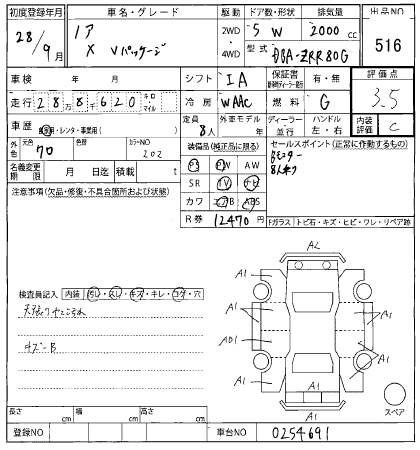 初度登録年月 車名・グレード 駆動 ドア数・形状 排気量 出品NO
28/9月 ノア 2WD 5 W 2000 cc 516
X Vパッケージ 4WD 型式 DBA-ZRR80G
車検 年 月 シフト IA 保証書 有・無 評価点
走行 288千620 キロ・マイル 冷房 WAAC 燃料 G 3.5
車歴 自家・レンタ・事業用( ) 定員 8人 外車モデル 年 ディーラー 並行 ハンドル 左・右 内装評価 C
外色 元色 70 色替 カラーNO 202 装備品(純正品に限る) セールスポイント(正常に作動するもの)
PS PW AW Bモニター
8人乗り
名義変更期限 月 日迄 積載 t SR TV ナビ
注意事項(欠品・修復・不具合箇所および状態) カワ エアB ABS
R券 12470円 Fガラス トビ石・キズ・ヒビ・ワレ・リペア跡
A2
A1 A1
検査員記入 内装 汚れ・ハガレ・キズ・キレ・コゲ・穴 A1 A1
天張りやよごれ AD1
キズ-B A1 A1
A1
A1
スペア
長さ cm 幅 cm 高さ cm
登録NO 車台NO 0254691